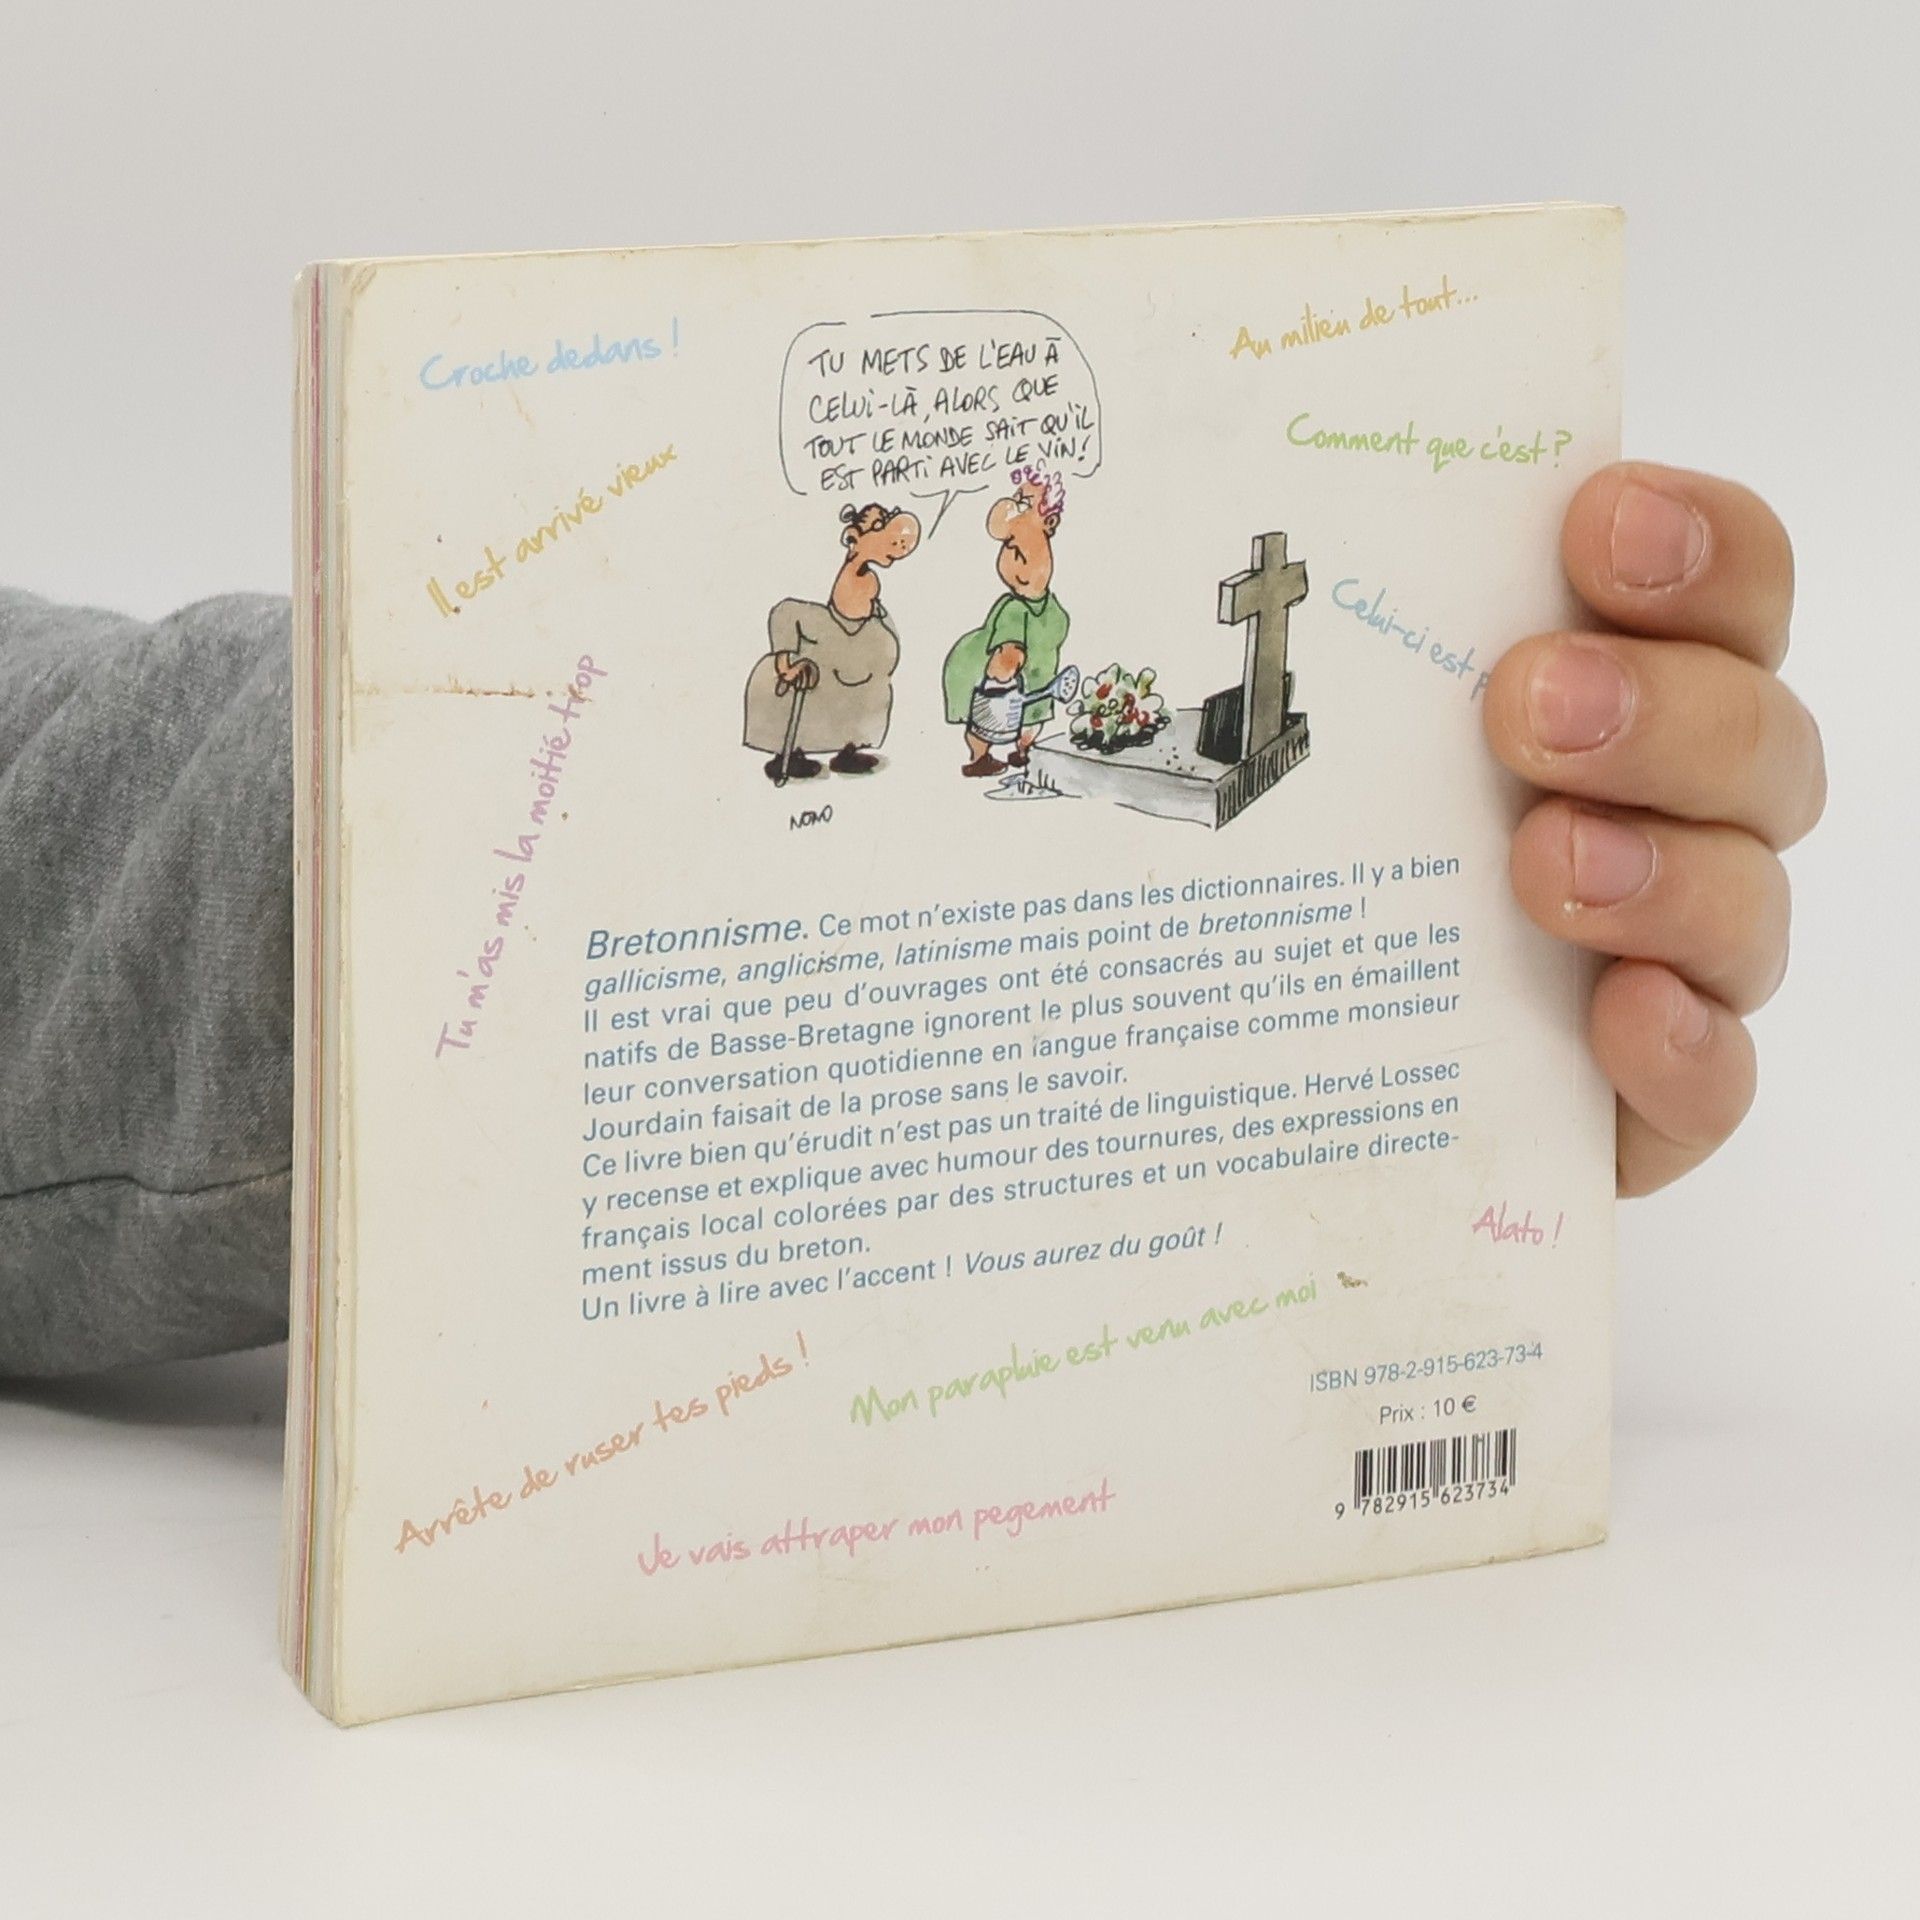 Croche dedans !
Au milieu de tout...
TU METS DE L'EAU À
CELUI-LÀ, ALORS QUE
TOUT LE MONDE SAIT QU'IL
EST PARTI AVEC LE VIN !
Comment que c'est ?
Il est arrivé vieux
Celui-ci est
Tu m'as mis la moitié trop
NONO
Bretonnisme. Ce mot n'existe pas dans les dictionnaires. Il y a bien
gallicisme, anglicisme, latinisme mais point de bretonnisme !
Il est vrai que peu d'ouvrages ont été consacrés au sujet et que les
natifs de Basse-Bretagne ignorent le plus souvent qu'ils en émaillent
leur conversation quotidienne en langue française comme monsieur
Jourdain faisait de la prose sans le savoir.
Ce livre bien qu'érudit n'est pas un traité de linguistique. Hervé Lossec
y recense et explique avec humour des tournures, des expressions en
français local colorées par des structures et un vocabulaire directe-
ment issus du breton.
Un livre à lire avec l'accent ! Vous aurez du goût !
Alato !
Mon parapluie est venu avec moi
Arrête de ruser tes pieds !
Je vais attraper mon pegement
ISBN 978-2-915-623-73-4
Prix : 10 €
9 782915 623734